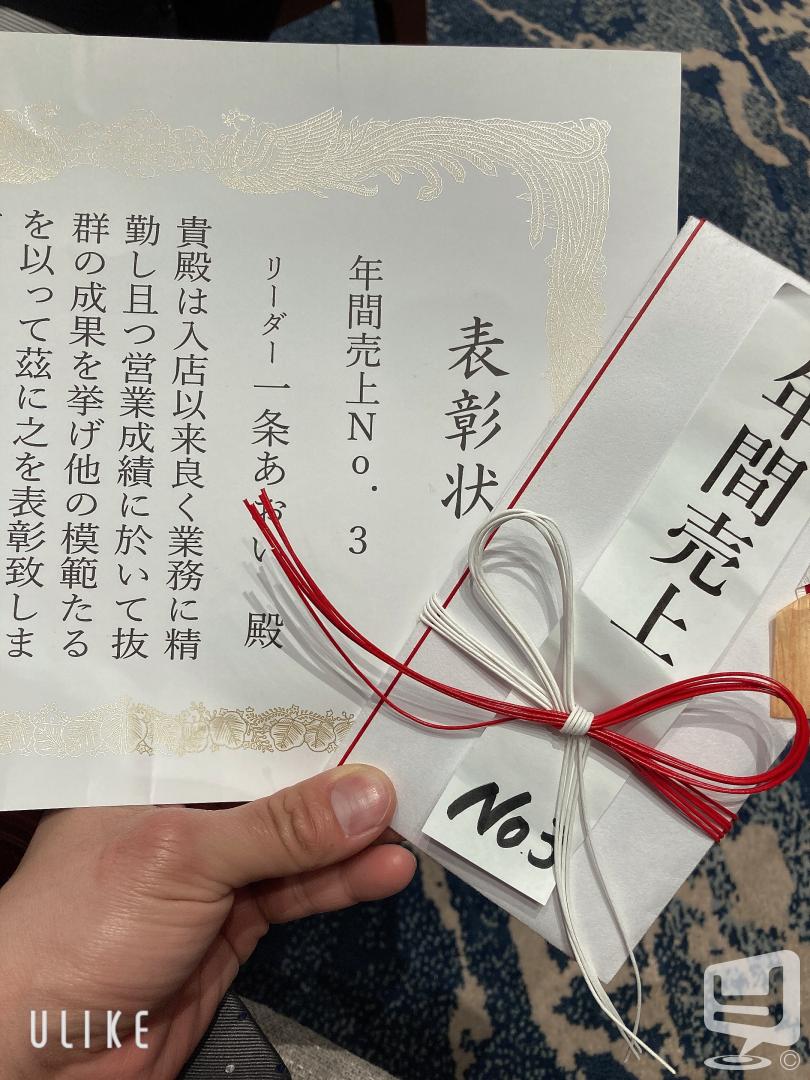 表彰状
年間売上No.3
リーダー 一条あおい 殿
貴殿は入店以来良く業務に精
勤し且つ営業成績に於いて抜
群の成果を挙げ他の模範たる
を以って茲に之を表彰致しま
年間売上
No.3
ULIKE
©